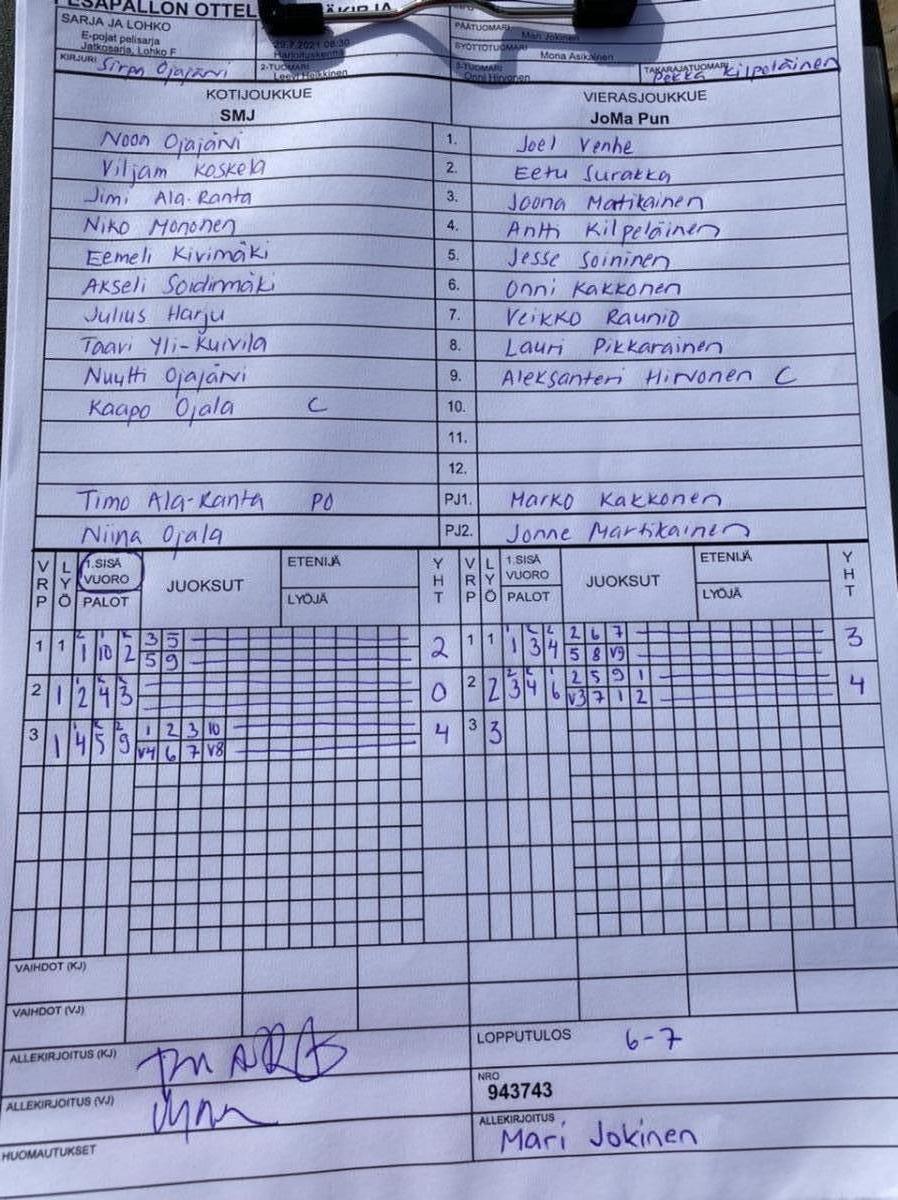 PESÄPALLON OTTEL
SARJA JA LOHKO
E-pojat pelisarja
Jatkosarja, Lohko F
29.7.2021 08:30
Harjoituskenttä
PÄÄTUOMARI
Mari Jokinen
SYÖTTÖTUOMARI
Mona Asikainen
KIRJURI Sirpa Ojajärvi
2-TUOMARI
Leevi Heikkinen
3-TUOMARI
Onni Hirvonen
TAKARAJATUOMARI
Pekka Kilpeläinen
KOTIJOUKKUE VIERASJOUKKUE
SMJ JoMa Pun
Noon Ojajärvi 1. Joel Venhe
Viljam Koskela 2. Eetu Surakka
Jimi Ala-Ranta 3. Joona Matikainen
Niko Mononen 4. Antti Kilpeläinen
Eemeli Kivimäki 5. Jesse Soininen
Akseli Soidinmäki 6. Onni Kakkonen
Julius Harju 7. Veikko Raunio
Taavi Yli-Kuivila 8. Lauri Pikkarainen
Nuutti Ojajärvi 9. Aleksanteri Hirvonen C
Kaapo Ojala C 10.
11.
12.
Timo Ala-Ranta PO PJ1. Marko Kakkonen
Niina Ojala PJ2. Jonne Martikainen
VRP LYÖ 1.SISÄ VUORO PALOT JUOKSUT ETENIJÄ LYÖJÄ YHT VRP LYÖ 1.SISÄ VUORO PALOT JUOKSUT ETENIJÄ LYÖJÄ YHT
1 1 1 10 2 3 5 2 1 1 1 3 4 2 6 7 3
5 9 5 8 V9
2 1 2 4 3 0 2 2 3 4 6 2 5 9 1 4
V3 7 1 2
3 1 4 5 9 1 2 3 10 4 3 3
V4 6 7 V8
VAIHDOT (KJ)
VAIHDOT (VJ)
ALLEKIRJOITUS (KJ) LOPPUTULOS 6-7
NRO
943743
ALLEKIRJOITUS (VJ) ALLEKIRJOITUS
Mari Jokinen
HUOMAUTUKSET